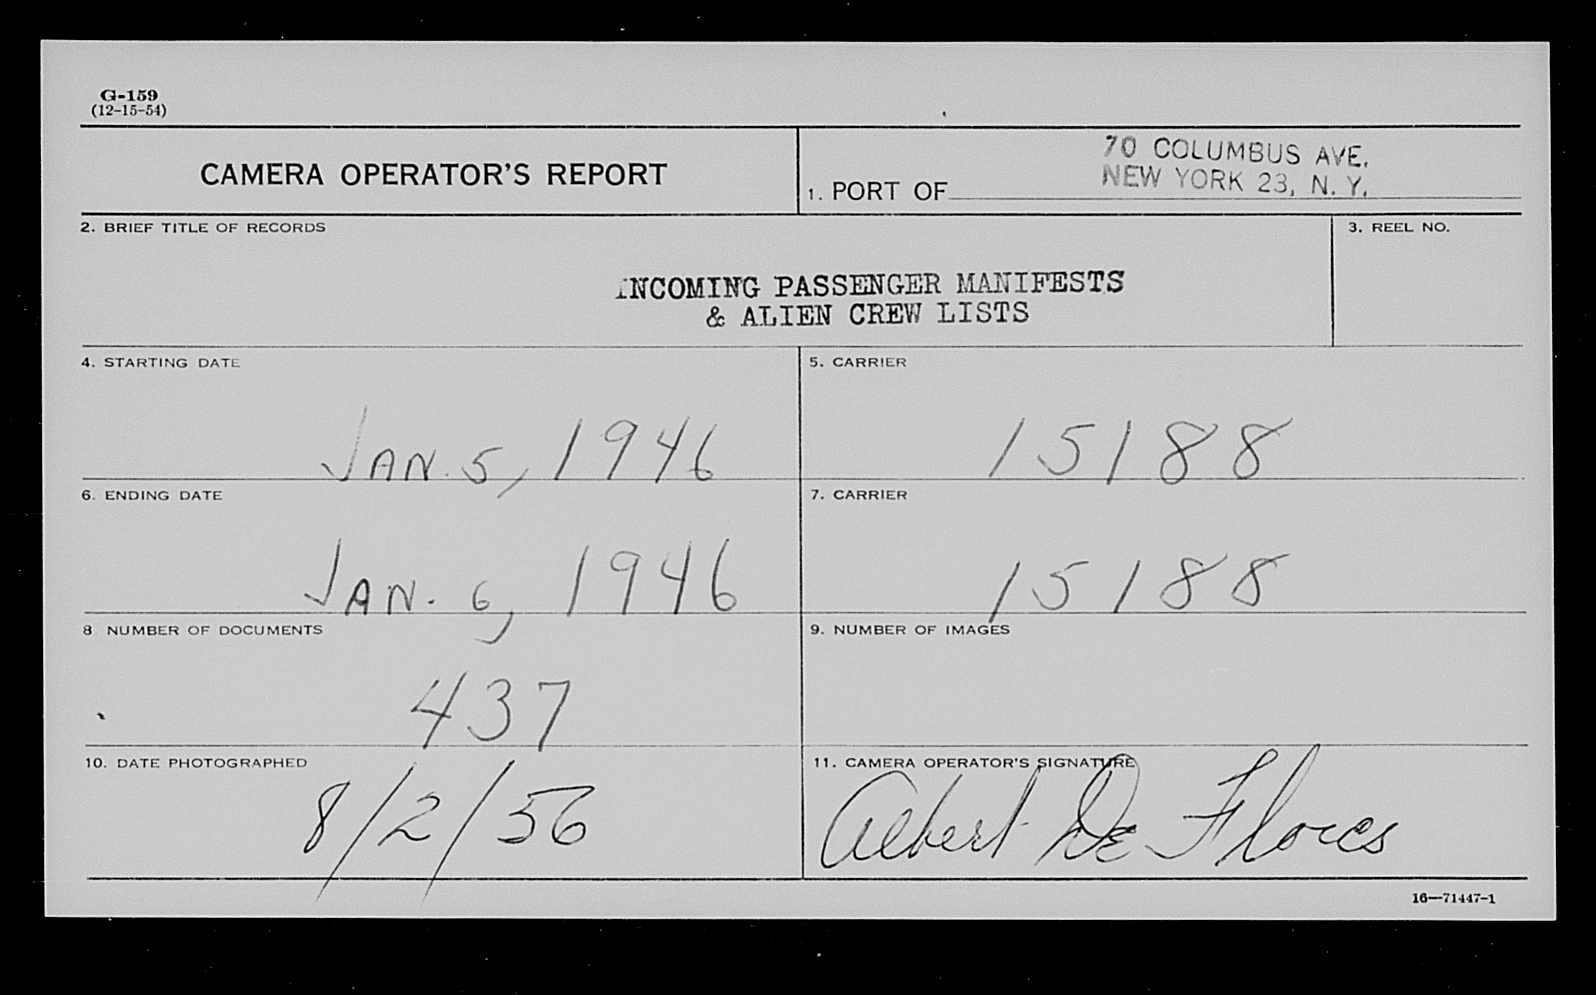 G-159
(12-15-54)
CAMERA OPERATOR'S REPORT
70 COLUMBUS AVE.
1. PORT OF NEW YORK 23, N. Y.
2. BRIEF TITLE OF RECORDS
3. REEL NO.
INCOMING PASSENGER MANIFESTS
& ALIEN CREW LISTS
4. STARTING DATE
5. CARRIER
JAN. 5, 1946
15188
6. ENDING DATE
7. CARRIER
JAN. 6, 1946
15188
8 NUMBER OF DOCUMENTS
9. NUMBER OF IMAGES
437
10. DATE PHOTOGRAPHED
11. CAMERA OPERATOR'S SIGNATURE
8/2/56
Albert De Flores
16—71447-1